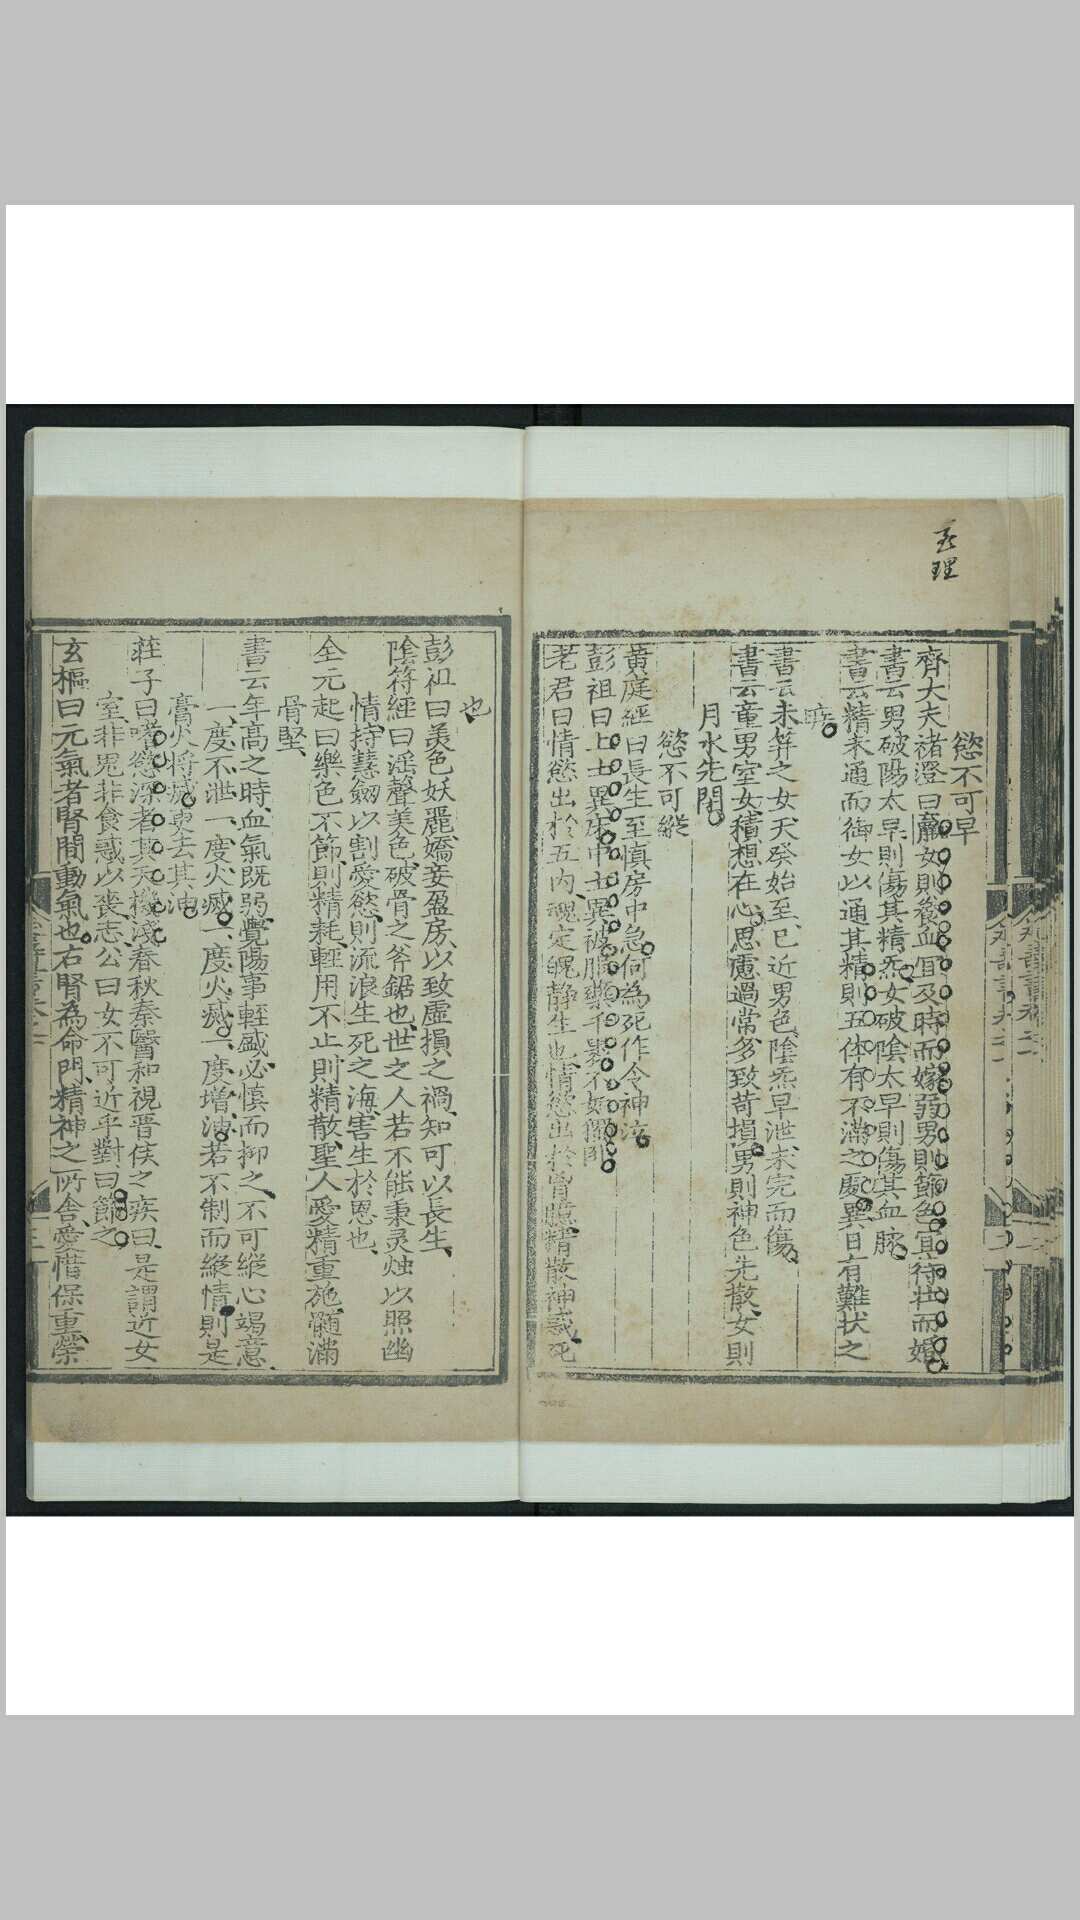 至理
慾不可早
齊大夫禇澄曰羸女則養血冝及時而嫁弱男則節色宜待壮而婚
書云男破陽太早則傷其精炁女破隂太早則傷其血脉
書云精未通而御女以通其精則五体有不滿之處異日有難状之
疾
書云未笄之女天癸始至已近男色隂炁早泄未完而傷
書云童男室女積想在心思慮過常多致苛損男則神色先散女則
月水先閉
慾不可縱
黄庭經曰長生至慎房中急何為死作令神泣
彭祖曰上士異床中士異被服藥千褁不如獨卧
老君曰情慾出於五内魂定魄静生也情慾出於胷臆精散神惑死
也
彭祖曰美色妖麗嬌妾盈房以致虚損之禍知可以長生
隂符經曰滛聲美色破骨之斧鋸也世之人若不能秉灵烛以照幽
情持慧劒以割愛慾則流浪生死之海害生於恩也
全元起曰樂色不節則精耗輕用不止則精散聖人愛精重施髓滿
骨堅
書云年高之時血氣既弱覺陽事輕盛必慎而抑之不可縱心竭意
一度不泄一度火滅一度火滅一度増油若不制而縱情則是
膏火将滅更去其油
莊子曰嗜慾深者其天機淺春秋秦醫和視晋侯之疾曰是謂近女
室非鬼非食惑以喪志公曰女不可近乎對曰節之
玄樞曰元氣者腎間動氣也右腎為命門精神之所舍愛惜保重榮